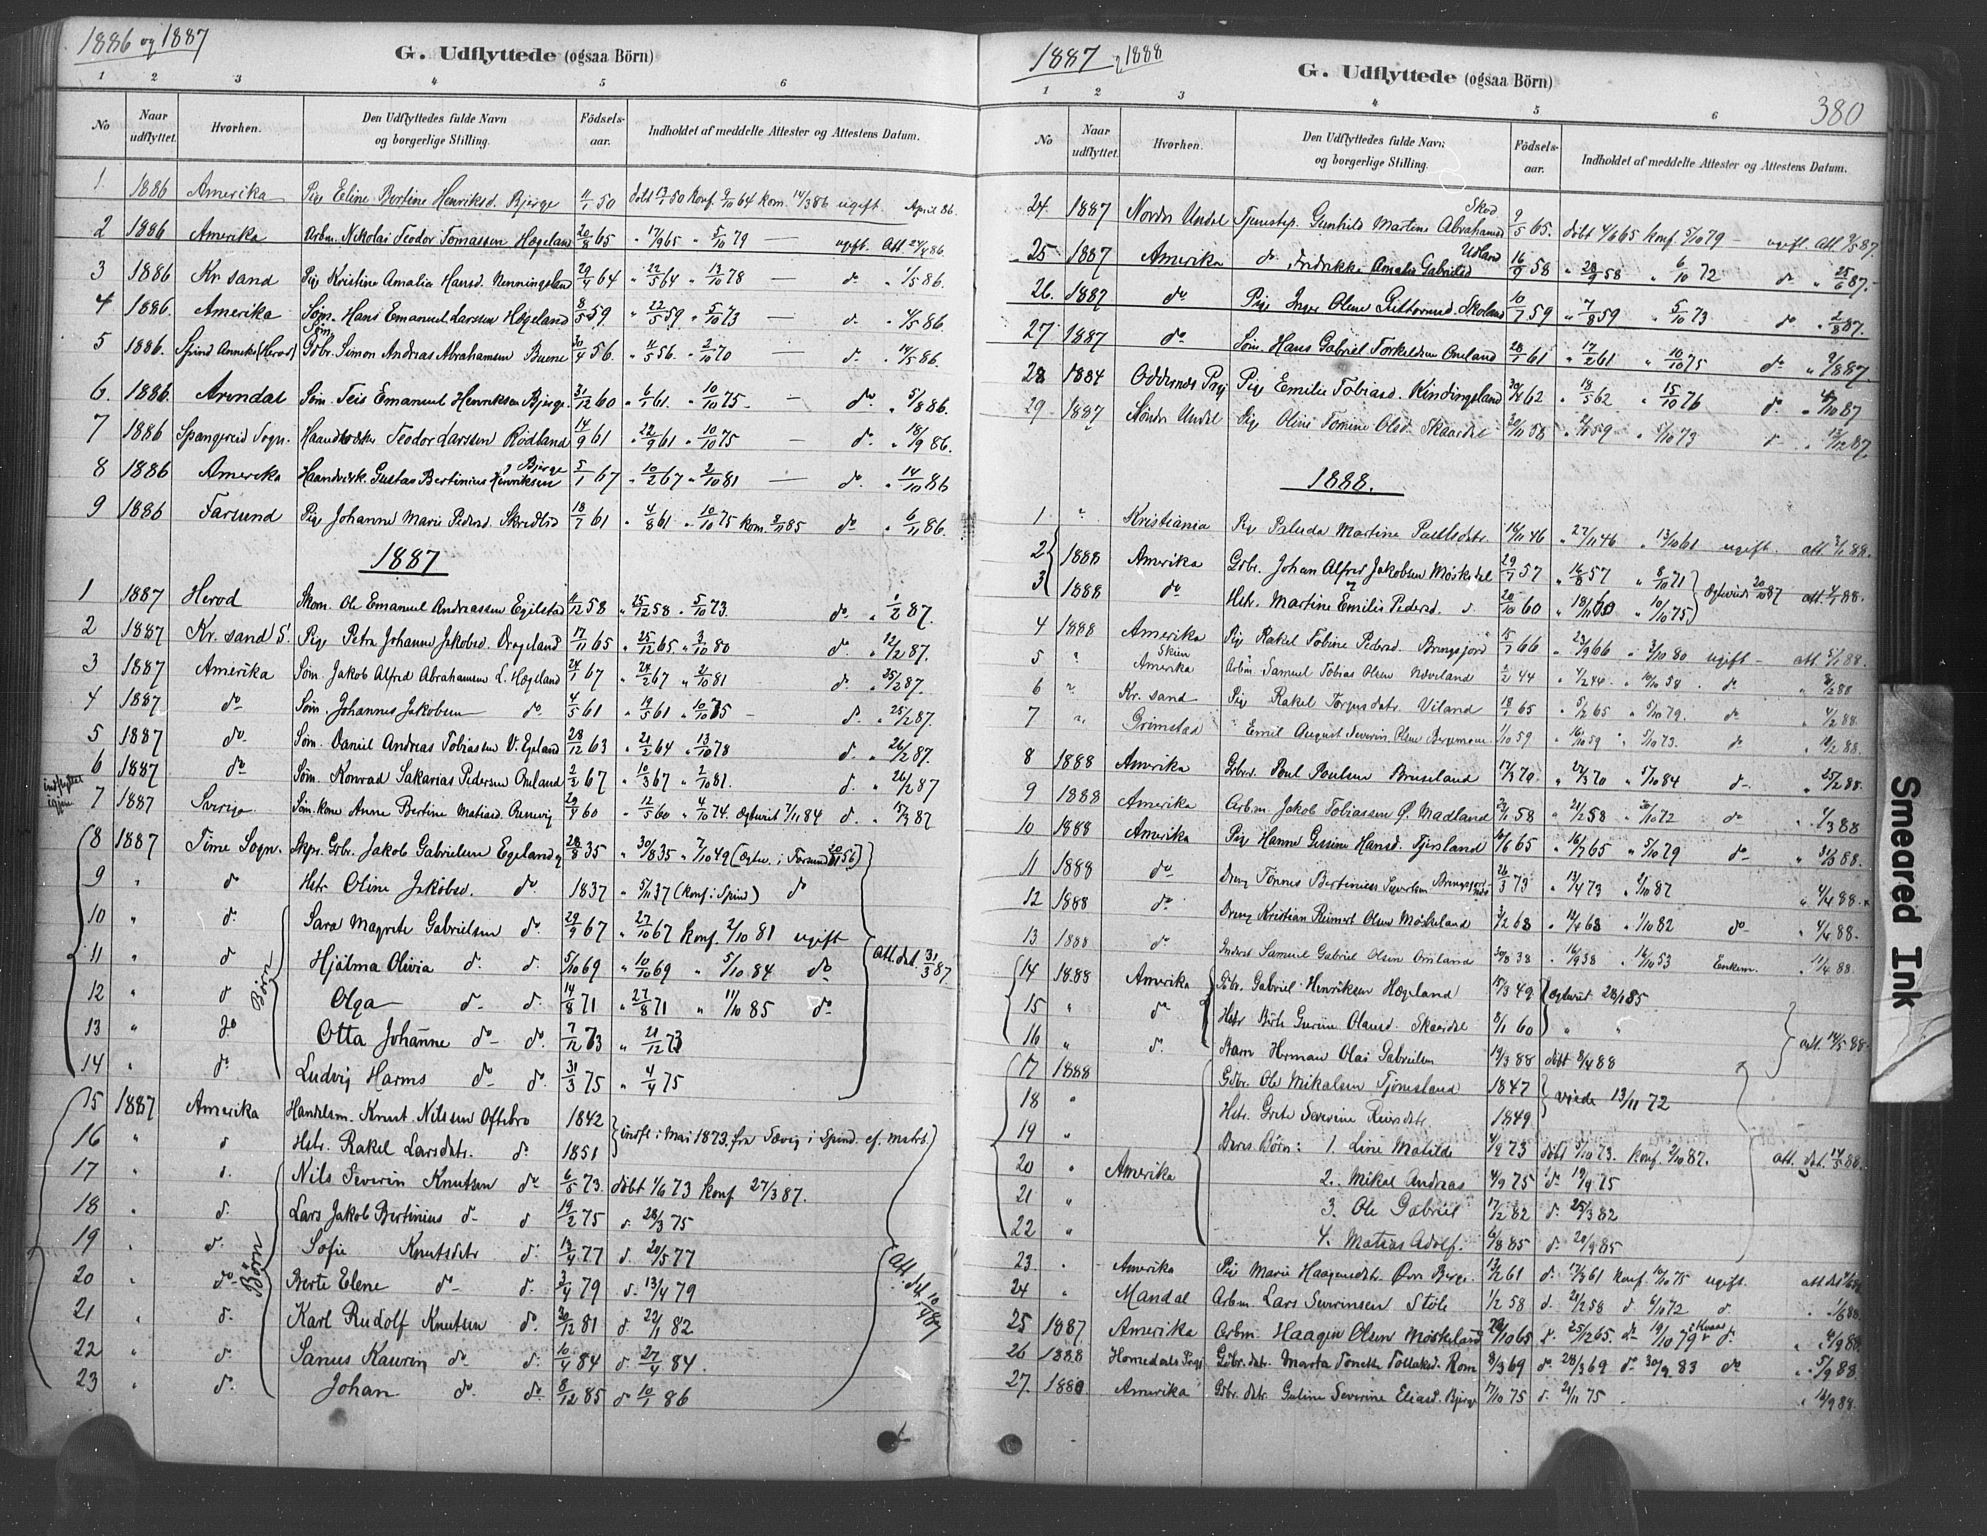 1886 og 1887
G. Udflyttede (ogsaa Börn)
1 2 3 4 5 6
No Naar udflyttet. Hvorhen. Den Udflyttedes fulde Navn og borgerlige Stilling. Födsels-aar. Indholdet af meddelte Attester og Attestens Datum.
1 1886 Amerika Pige Eline Bertine Henriksd. Bjerge 11/1 50 döbt 13/1 50 konf. 9/10 64 kom. 14/3 86 ugift April 86.
2 1886 Amerika Arbm. Nikolai Teodor Tomassen Hægeland 20/8 65 " 17/9 65 " 5/10 79 — ugift. Att. 24/4 86.
3 1886 Kr. sand Pige Kristine Amalia Hansd. Nenningsland 29/4 64 " 22/5 64 " 13/10 78 do. " 1/5 86.
4 1886. Amerika Söm. Hans Emanuel Larssen Hægeland 8/5 59. " 22/5 59 " 5/10 73 — d. " 4/5 86.
5 1886. Spind Anneks (Herod) Söm. Gbr. Simon Andreas Abrahamsen Buene 30/4 56. " 11/5 56. " 2/10 70 — do. " 14/5 86.
6. 1886. Arendal Söm. Teis Emanuel Henriksen Bjerge 31/12 60 " 6/1 61. " 10/10 75. — do. " 5/8 86.
7 1886 Spangereid Sogn. Teodor Larssen Rödland 14/9 61 " 22/9 61 " 10/10 75 — do. " 18/9 86.
8 1886 Amerika Haandverk. Gustav Bertinius Henriksen Bjerge 5/1 67 " 10/2 67 " 2/10 81 — do. " 14/10 86
9 1886 Farsund Pige Johanne Marie Pedersd. Skredlid 18/7 61 " 4/8 61 " 10/10 75 kom. 85 do " 6/11 86.
1887
1 1887 Herod Skom. Ole Emanuel Andreassen Egilstad 11/12 58 " 25/12 58 " 5/10 73. do. " 1/2 87.
2 1887 Kr. sand S. Pige Petra Johanne Jakobsd. Drageland 17/11 65 " 25/12 65 " 3/10 80 do. " 12/2 87.
3 1887 Amerika Söm. Jakob Alfred Abrahamsen L. Hægeland 24/1 67 " 24/2 67 " 2/10 81 d. " 25/2 87.
4 1887 do Söm. Johannes Jakobsen do. 4/5 61 " 19/5 61 " 10/10 75 — d. " 25/2 87.
5 1887 do. Söm. Daniel Andreas Tobiassen V. Egeland 28/12 63 " 21/2 64 " 13/10 78 d. " 26/2 87.
6 1887 do. Söm. Konrad Sakarias Pedersen Omland 2/2 67 " 10/3 67 " 2/10 81. d. " 26/2 87
7 1887 Sverige Söm. kone Anne Bertine Matiasd. 29/4 60 " 12/5 60 " 4/10 74. Egteviet 7/11 84 d. " 17/3 87
8 1887 Time Sogn. Skpr. Gbr. Jakob Gabrielsen Egeland 28/8 35 " 30/8 35 " 7/10 49 (Egtev. i Farsund 56)
9 " d Hstr Oline Jakobsd. do. 1837 " 5/11 37 (konf. i Spind) d
10 " d. Sara Magrete Gabrielsen do. 29/9 67 " 27/10 67 konf. 2/10 81 ugift
11 " d Hjalma Olivia d. d. 5/10 69 " 10/10 69 " 5/10 84 do Att. dat. 31/3 87.
12 " d Olga — d. d. 14/8 71 " 27/8 71 " 11/10 85 do
13 " do Börn Otta Johanne do. do. 7/12 73 " 21/12 73
14 " do. Ludvig Harms do do. 31/3 75 " 4/4 75
15 1887 Amerika Handelsm. Knut Nilssen Oftebro 1842
16 " d Hstr. Rakel Larsdtr. do 1851 indfl. i Mai 1873, fra i Spind. cf. matr.
17 " d. Nils Severin Knutsen do 6/5 73. döbt 1/6 73 konf 27/3 87.
18 " d. Lars Jakob Bertinius d. d 19/2 75 d. 28/3 75
19 " d. Sofie Knutsdtr d. 13/4 77 d. 20/5 77
20 " do. Börn Berte Elene do. d. 3/4 79 d. 13/4 79 Att. dat. 10/4 87
21 " d. Karl Rudolf Knutsen do. 30/12 81 d 22/1 82
22 " d. Sanus Kaurin do d. 10/4 84 d 27/4 84.
23 " d. Johan do do. 8/12 85 d 10/1 86
1887 og 1888
G. Udflyttede (ogsaa Börn) 380
1 2 3 4 5 6
No Naar udflyttet. Hvorhen. Den Udflyttedes fulde Navn og borgerlige Stilling. Födsels-aar. Indholdet af meddelte Attester og Attestens Datum.
24. 1887 Nordre Undal Tjenstep. Gunhild Martine Abrahamsd Skod 9/5 65. döbt 4/6 65 konf. 5/10 79 — ugift Att 7/5 87.
25 1887 Amerika d. Fredrikke Amalie Gabrielsd Udland 16/9 58 " 28/9 58 " 6/10 72 do " 25/6 87.
26. 1887 do. Pige Inger Oline Guttormsd. Skoland 10/7 59 " 7/8 59 " 5/10 73 do " 2/8 87.
27 1887 do Söm. Hans Gabriel Torkelsen Omland 28/1 61 " 17/2 61 " 10/10 75 do " 9/8 87.
28 1884 Oddernes Pgj Pige Emilie Tobiasd. Kindingsland 20/4 62 " 18/5 62 " 15/10 76 d. " 4/10 87
29 1887 Söndre Undal Pige Oline Tomine Olsd. Skaardal 30/11 58 " 2/1 59 " 5/10 73 d " 13/12 87.
1888.
1 " Kristiania Pige Paluda Martine Paulsdatr. 14/11 46 " 27/11 46 " 13/10 61 ugift. att. 3/1 88.
2 1888 Amerika Gbr. Johan Alfred Jakobsen Möskedal 29/7 57 " 16/8 57 " 8/10 71 Egteviede 20/10 87 att. 4/1 88.
3 1888 do Hstr. Martine Emilie Pedersd. d. 20/10 60 " 18/11 60 " 10/10 75.
4 1888 Amerika Pige Rakel Tobine Pedersd. Bringsjord 15/7 66 " 23/9 66 " 3/10 80 ugift — att. 5/1 88.
5 " Skien Amerika Arbm. Samuel Tobias Olsen Növeland 2/2 44 " 4/2 44. " 10/10 58 . do " 8/2 88
6 " Kr. sand Pige Rakel Torgersdatr. Viland 18/1 65 " 5/2 65 " 5/10 79. do " 4/2 88.
7 " Grimstad " Emil August Severin Olsen Bergemoen 1/10 59 " 16/10 59 " 5/10 73. do " 10/2 88.
8 1888 Amerika Gbrs. Poul Poulsen Briseland 17/3 70. " 27/3 70 " 5/10 84 d— " 25/2 88.
9 1888 Amerika Arbm. Jakob Tobiassen Ö. Madland 22/1 58 " 21/2 58 " 20/10 72 do " 1/3 88
10 1888 Amerika Pige Hanne Gissine Hansd. Tjersland 10/6 65 " 16/7 65 " 5/10 79 do— " 31/3 88.
11 1888 do— Dreng Tönnes Bertinius Bringsjord 26/3 73 " 13/4 73 " 2/10 87 " 4/4 88.
12 1888 do. Dreng Kristian Reinert Olsen Möskeland 3/2 68 " 12/4 68 " 1/10 82 do— " 4/4 88.
13 1888 do Inderst Samuel Gabriel Olsen Omland 30/8 38 " 16/9 38 " 16/10 53 Enkem. " 11/4 88.
14 1888 Amerika Gbr. Gabriel Henriksen Hægeland 15/3 49 Egteviet 28/1 85
15 " do Hstr Birte Gurine Olausd. Skaardal 8/1 60 " "
16 " d. Barn Herman Olai Gabrielsen 19/3 88 döbt 8/4 88 att. 14/5 88.
17 1888 Gbr. Ole Mikalsen Tjomsland 1847
18 " Hstr. Grete Severine 1849 viede 13/11 72
19 " Deres Börn: 1. Line Matilde 4/9 73 döbt 5/10 73. konf. 2/10 87.
20 " Amerika 2. Mikal Andreas 4/9 75 do 19/9 75 att. dat. 88.
21 " 3. Ole Gabriel 17/2 82 d. 25/3 82
22 " 4. Matias Adolf. 6/8 85 d. 20/9 85
23. " Amerika Pige Marie Haagensdtr. Berge. 13/2 61 d. 17/3 61 konf 10/10 75 ugift. att dat
24 " Mandal Arbm Lars Severinsen Stöle 1/2 58 d. 21/2 58 d 6/10 72 d " 1/6 88.
25 1887 Amerika Arbm. Haagen Olsen Möskeland 65 d. 25/12 65 do 19/10 79 d. " 4/9 88.
26 1888 Homedals Pgj. Gbr. datr. Marta Tonette Tollaksd. Rom 8/3 69 do. 28/3 69 do. 30/9 83 do " 5/9 88.
27. 1888 Amerika Gbr. datr. Guline Severine Eliasd. Bjerge 17/10 75 d. 21/11 75 . " 12/9 88.
Smeared Ink